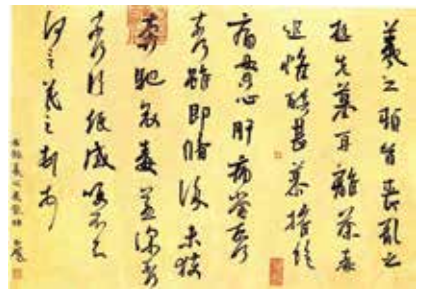 羲之頓首喪亂之
極先墓再離荼毒
追惟酷甚慕摧絕
痛貫心肝痛當奈何
奈何雖即脩復未獲
奔馳哀毒益深奈何
奈何臨紙感哽不知
何言羲之頓首